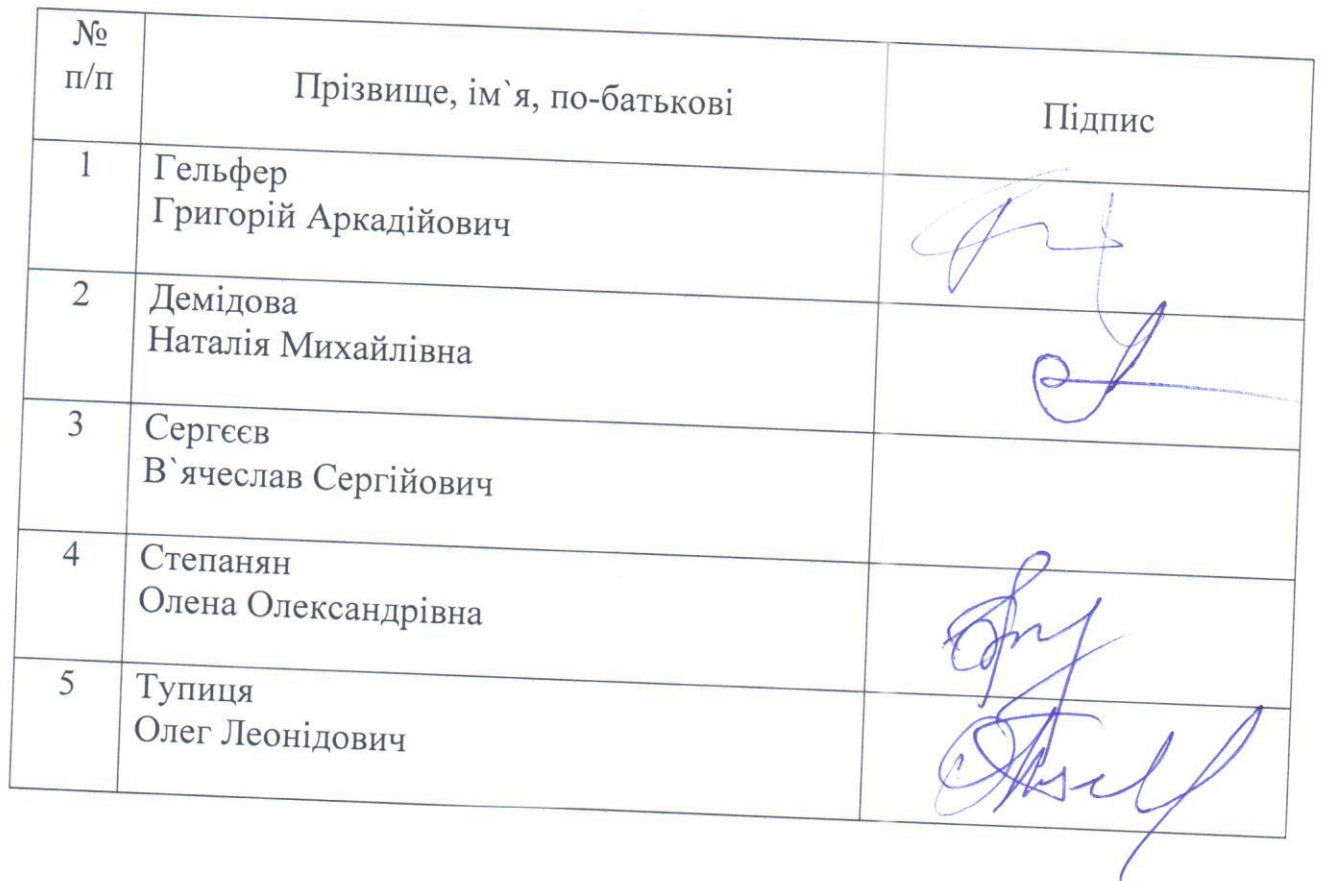 №
п/п
Прізвище, ім`я, по-батькові
Підпис
1
Гельфер
Григорій Аркадійович
2
Демідова
Наталія Михайлівна
3
Сергєєв
В`ячеслав Сергійович
4
Степанян
Олена Олександрівна
5
Тупиця
Олег Леонідович